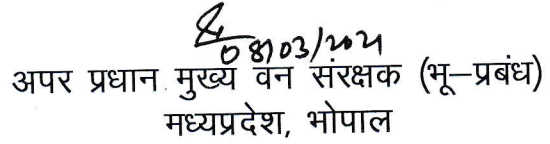 08/03/2021
अपर प्रधान मुख्य वन संरक्षक (भू-प्रबंध)
मध्यप्रदेश, भोपाल